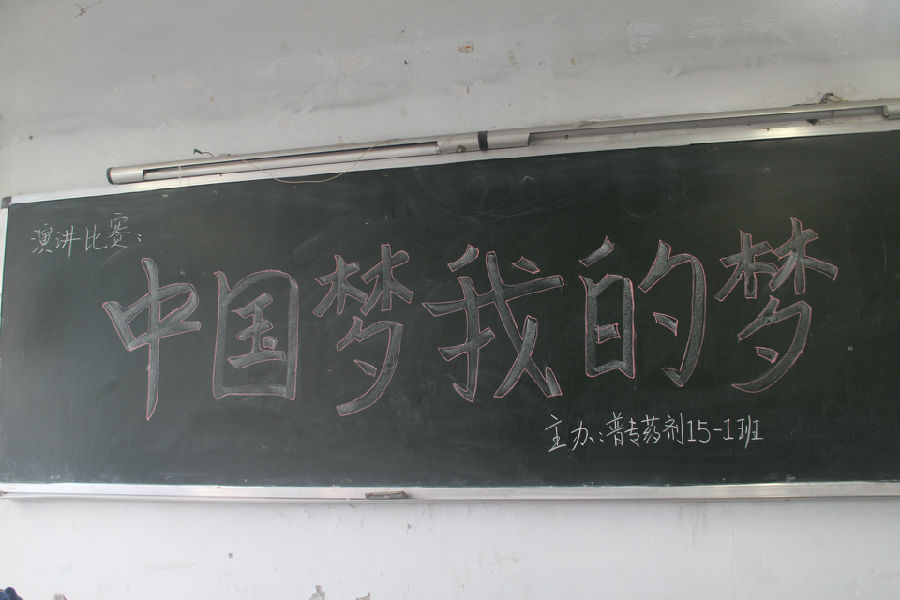 演讲比赛:
中国梦我的梦
主办:普专药剂15-1班